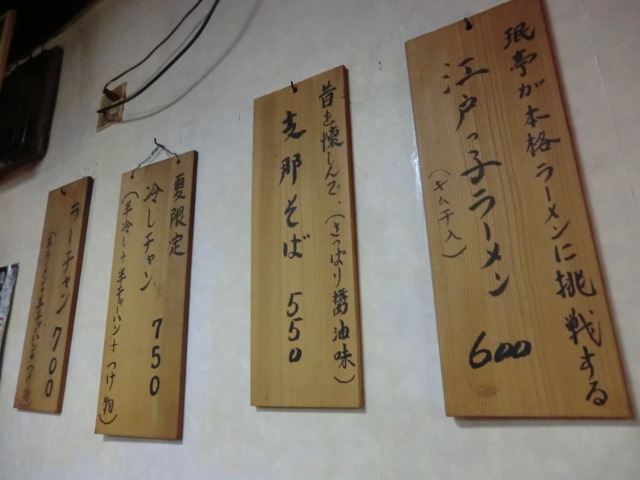 珉亭が本格ラーメンに挑戦する
江戸っ子ラーメン 600
(キムチ入)
昔を懐しんで、(さっぱり醤油味)
支那そば 550
夏限定
冷しチャン 750
(半冷し+半チャーハン+つけ物)
ラーチャン 700
(半ラーメン+半チャーハン+つけ物)